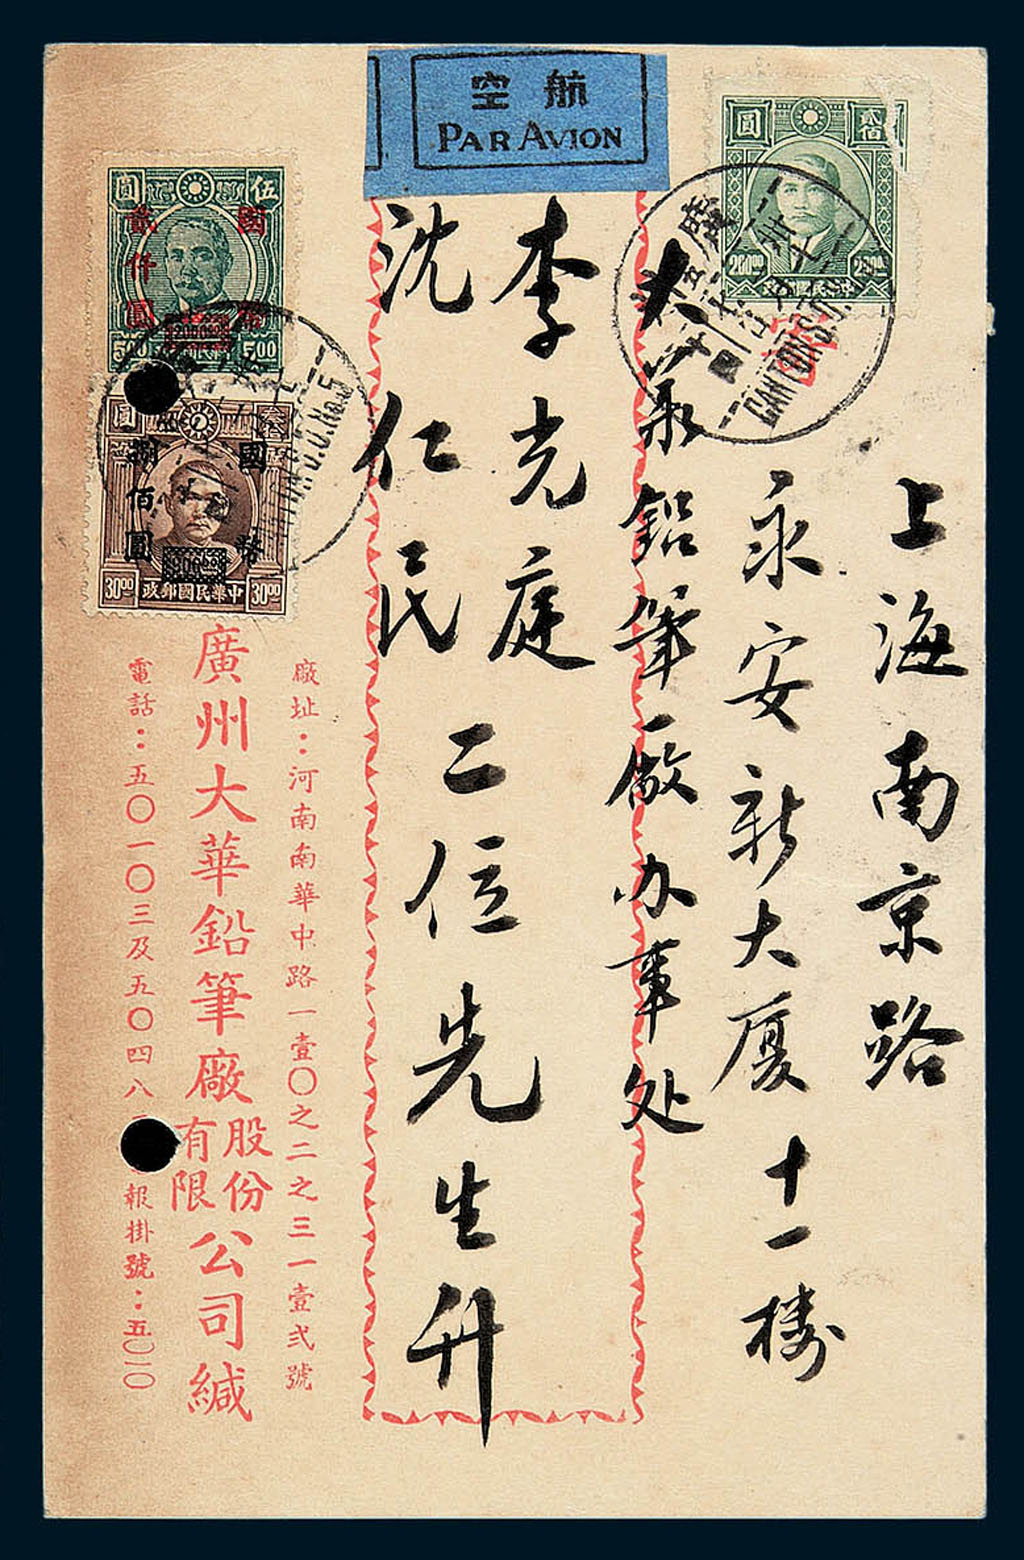 航空
PAR AVION
圓 拾
20000 20000
廣州
CANTON
上海南京路
永安新大厦十一楼
大華鉛筆厰办事处
李光庭
沈仁民
二位先生升
圓 伍
國幣
貳仟圓
200000
500 5.00
S.O.No.5
圓
國幣
捌佰圓
80000
3000 中華民國郵政 3000
廠址：河南南華中路一壹〇之二之三一壹弍號
廣州大華鉛筆廠股份有限公司緘
電話：五〇一〇三及五〇四八
報掛號：五〇一〇